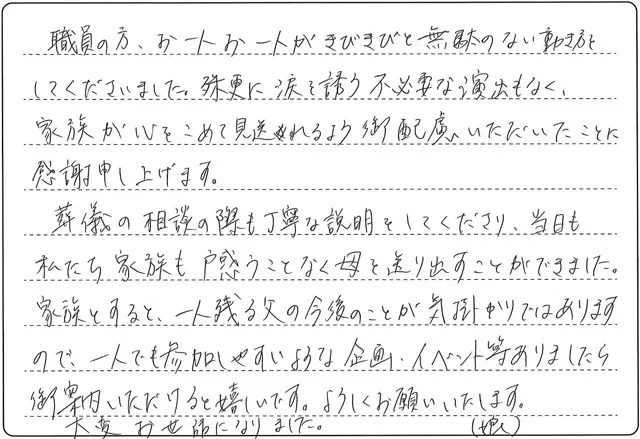 職員の方、お一人お一人がきびきびと無駄のない動きを
してくださいました。殊更に涙を誘う不必要な演出もなく、
家族が心をこめて見送れるよう御配慮いただいたことに
感謝申し上げます。
葬儀の相談の際も丁寧な説明をしてくださり、当日も
私たち家族も戸惑うことなく母を送り出すことができました。
家族とすると、一人残る父の今後のことが気掛かりではあります
ので、一人でも参加しやすいような企画、イベント等ありましたら
御案内いただけると嬉しいです。よろしくお願いいたします。
大変お世話になりました。 (娘)